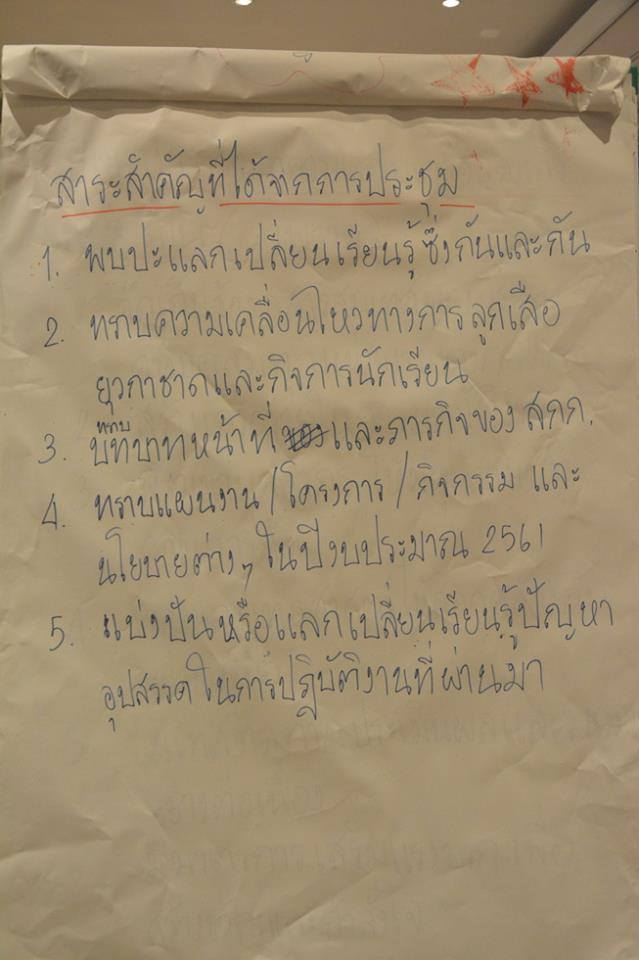 สาระสำคัญที่ได้จากการประชุม
1. พบปะแลกเปลี่ยนเรียนรู้ซึ่งกันและกัน
2. ทราบความเคลื่อนไหวทางการลูกเสือ
ยุวกาชาดและกิจการนักเรียน
ทราบ
3. บทบาทหน้าที่และภารกิจของ สกก.
4. ทราบแผนงาน/โครงการ/กิจกรรม และ
นโยบายต่างๆ ในปีงบประมาณ 2561
5. แบ่งปันหรือแลกเปลี่ยนเรียนรู้ปัญหา
อุปสรรคในการปฏิบัติงานที่ผ่านมา